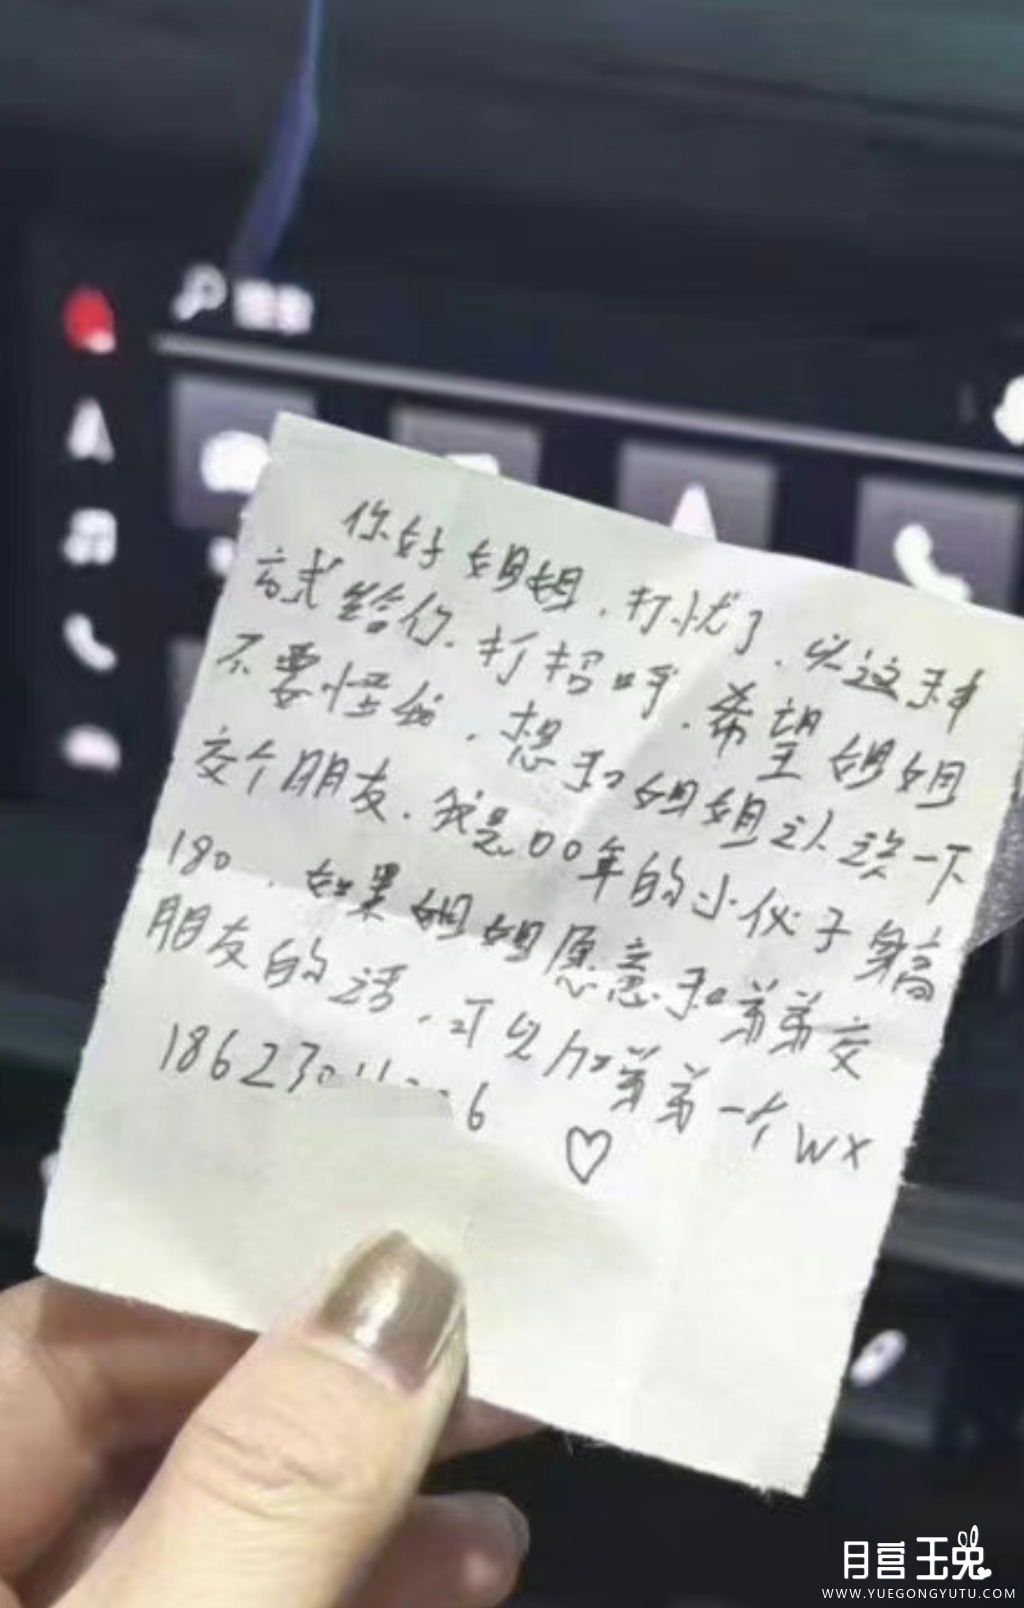 你好姐姐.打扰了.以这种
方式给你.打招呼.希望姐姐
不要怪我.想和姐姐认识一下
交个朋友.我是00年的小伙子身高
180.如果姐姐愿意和弟弟交
朋友的话.可以加弟弟一个WX
186230 6 ♡
月宫玉兔
WWW.YUEGONGYUTU.COM